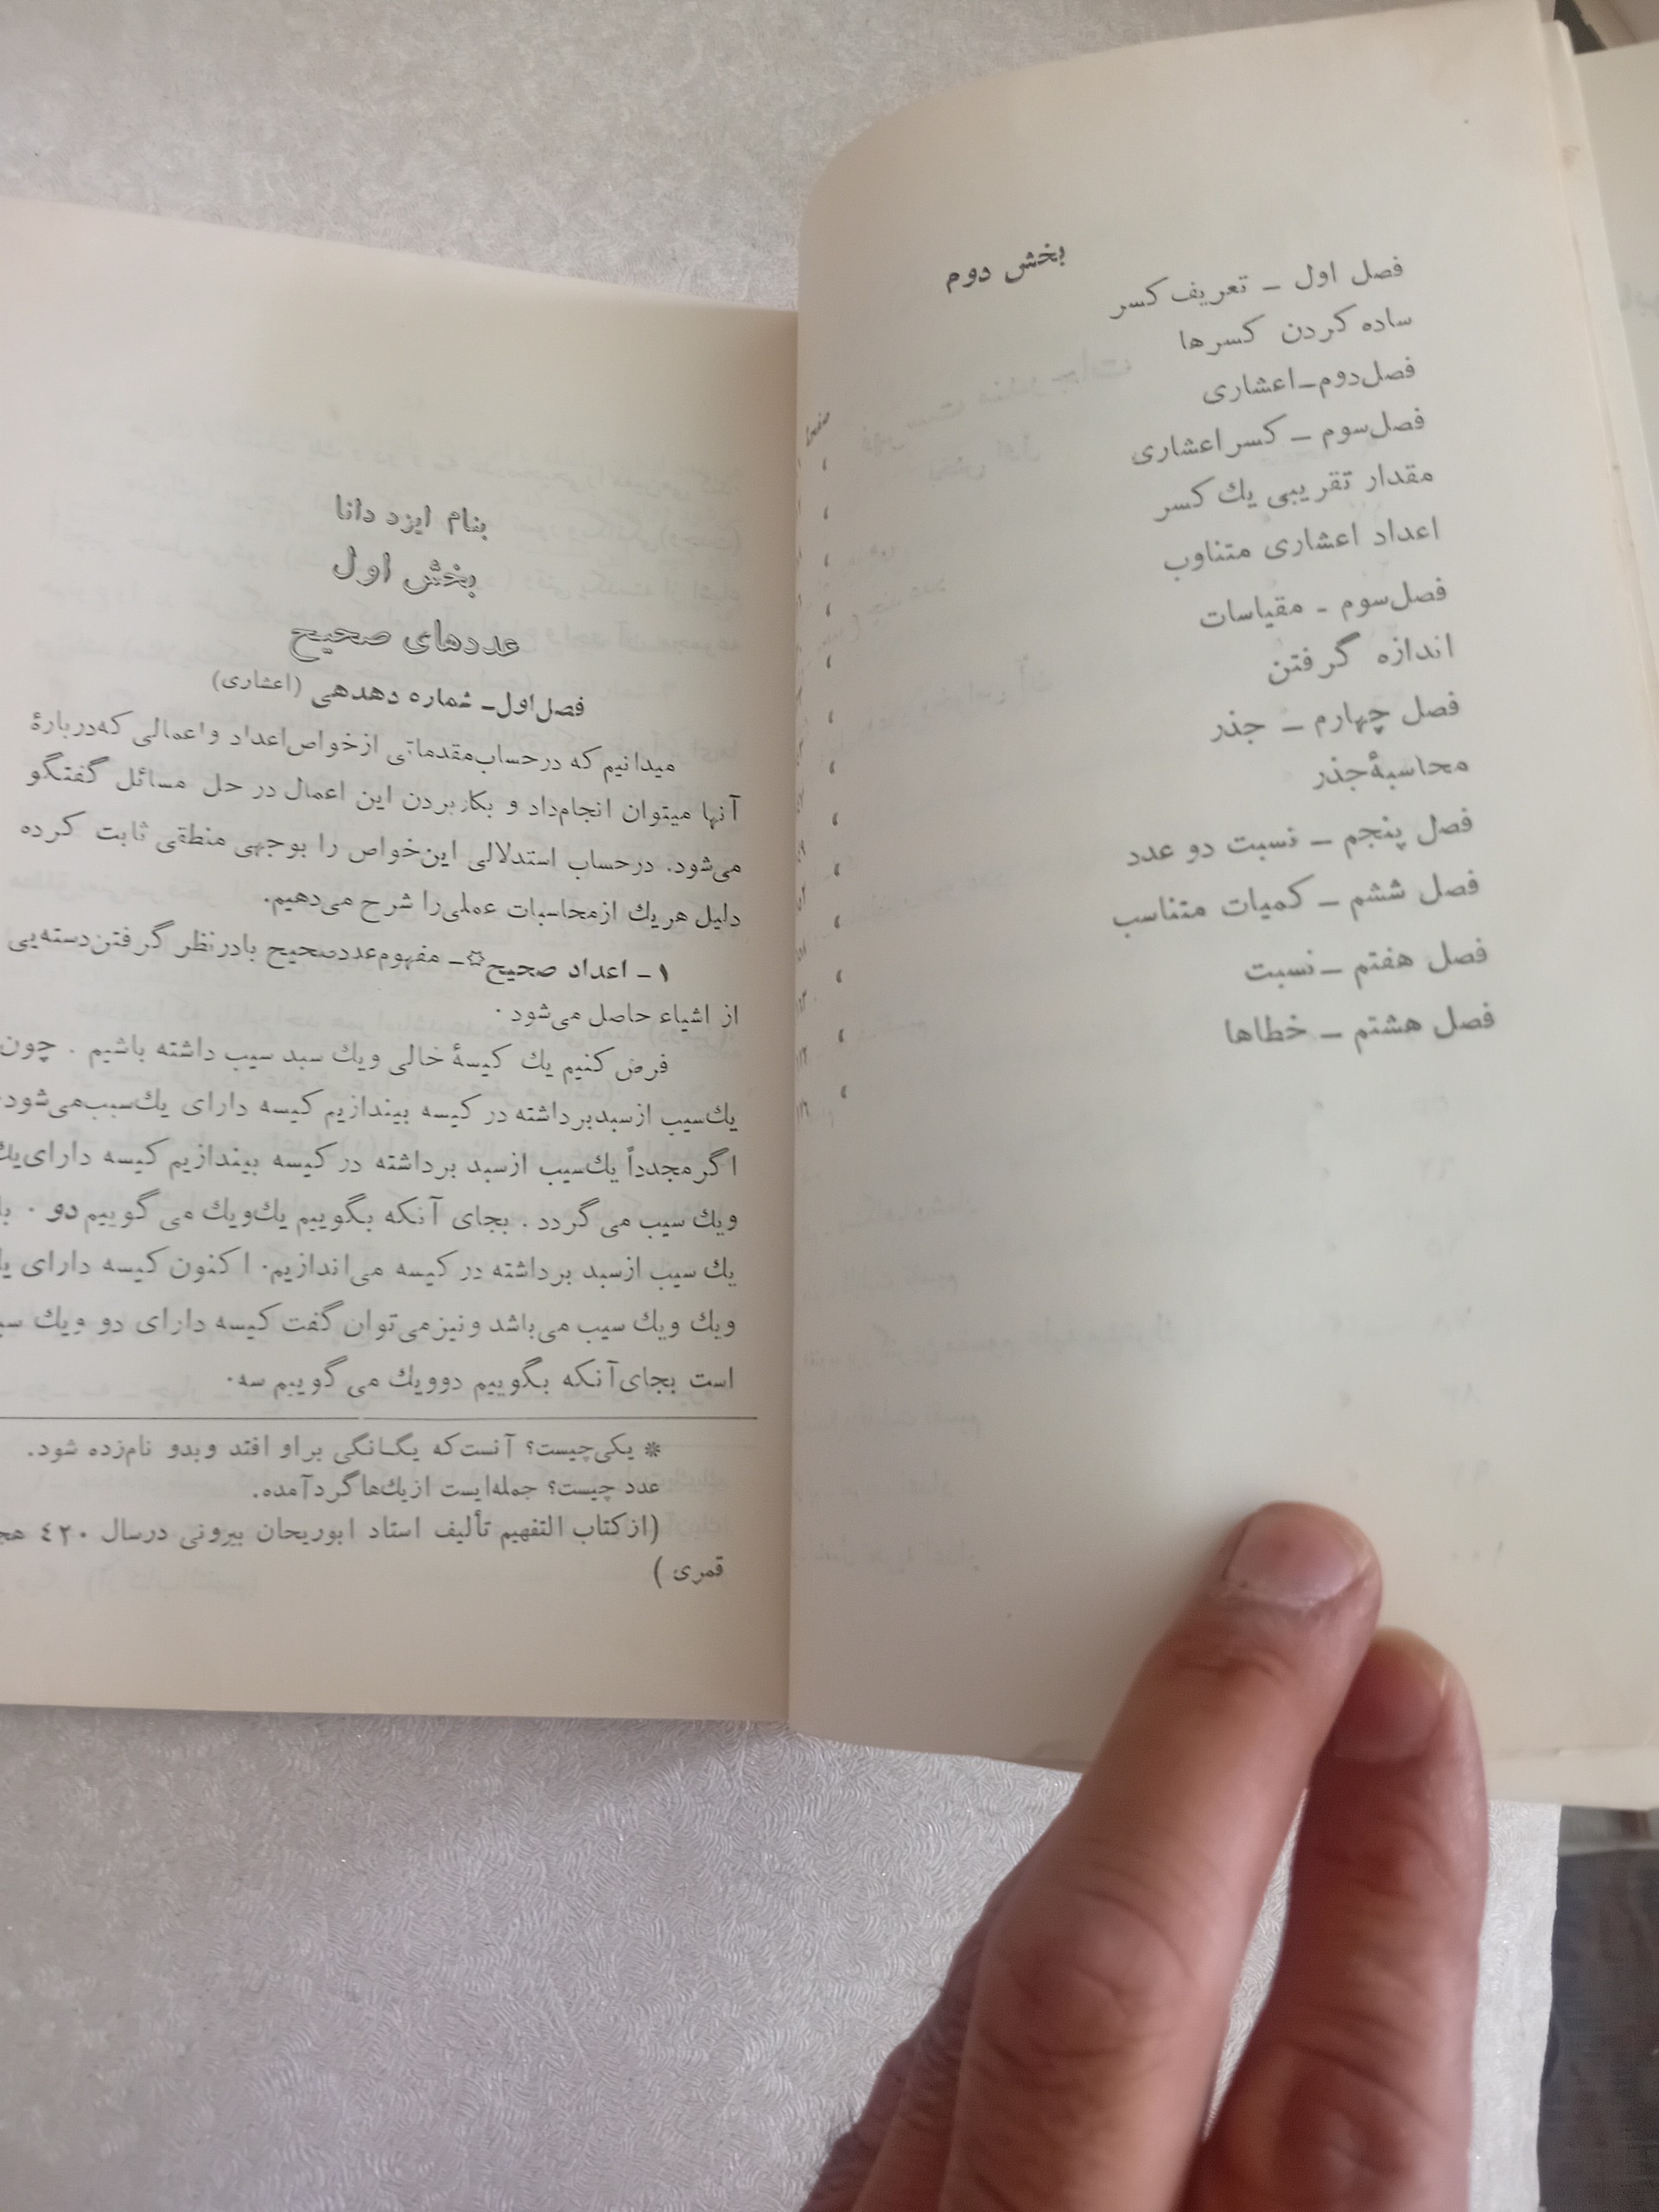 بخش دوم
فصل اول ــ تعریف کسر
ساده کردن کسرها
فصل‌دوم‌ــ‌اعشاری
فصل‌سوم ــ کسر اعشاری
مقدار تقریبی یك کسر
اعداد اعشاری متناوب
فصل‌سوم ـ مقیاسات
اندازه گرفتن
فصل چهارم ــ جذر
محاسبهٔ‌جذر
فصل پنجم ــ نسبت دو عدد
فصل ششم ــ کمیات متناسب
فصل هفتم ــ نسبت
فصل هشتم ــ خطاها
صفحه
بنام ایزد دانا
بخش اول
عددهای صحیح
فصل‌اول‌ــ شماره دهدهی (اعشاری)
میدانیم که درحساب‌مقدماتی ازخواص‌اعداد واعمالی که‌دربارهٔ
آنها میتوان انجام‌داد و بکاربردن این اعمال در حل مسائل گفتگو
می‌شود. درحساب استدلالی این‌خواص را بوجهی منطقی ثابت کرده
دلیل هریك ازمحاسبات عملی‌را شرح می‌دهیم.
۱ ــ اعداد صحیح☆ــ مفهوم‌عددصحیح بادرنظر گرفتن‌دسته‌یی
از اشیاء حاصل می‌شود .
فرض کنیم یك کیسهٔ خالی ویك سبد سیب داشته باشیم . چون
یك‌سیب ازسبدبرداشته در کیسه بیندازیم کیسه دارای یك‌سیب‌می‌شود.
اگر مجدداً یك‌سیب ازسبد برداشته در کیسه بیندازیم کیسه دارای‌یك
ویك سیب می گردد . بجای آنکه بگوییم یك‌ویك می گوییم دو .
یك سیب ازسبد برداشته در کیسه می‌اندازیم. اکنون کیسه دارای
ویك ویك سیب می‌باشد ونیزمی‌توان گفت کیسه دارای دو ویك
است بجای‌آنکه بگوییم دوویك می گوییم سه.
* یکی‌چیست؟ آنست‌که یگانگی براو افتد وبدو نام‌زده شود.
عدد چیست؟ جمله‌ایست ازیك‌هاگردآمده.
(ازکتاب التفهیم تألیف استاد ابوریحان بیرونی درسال ٤٢٠
قمری )